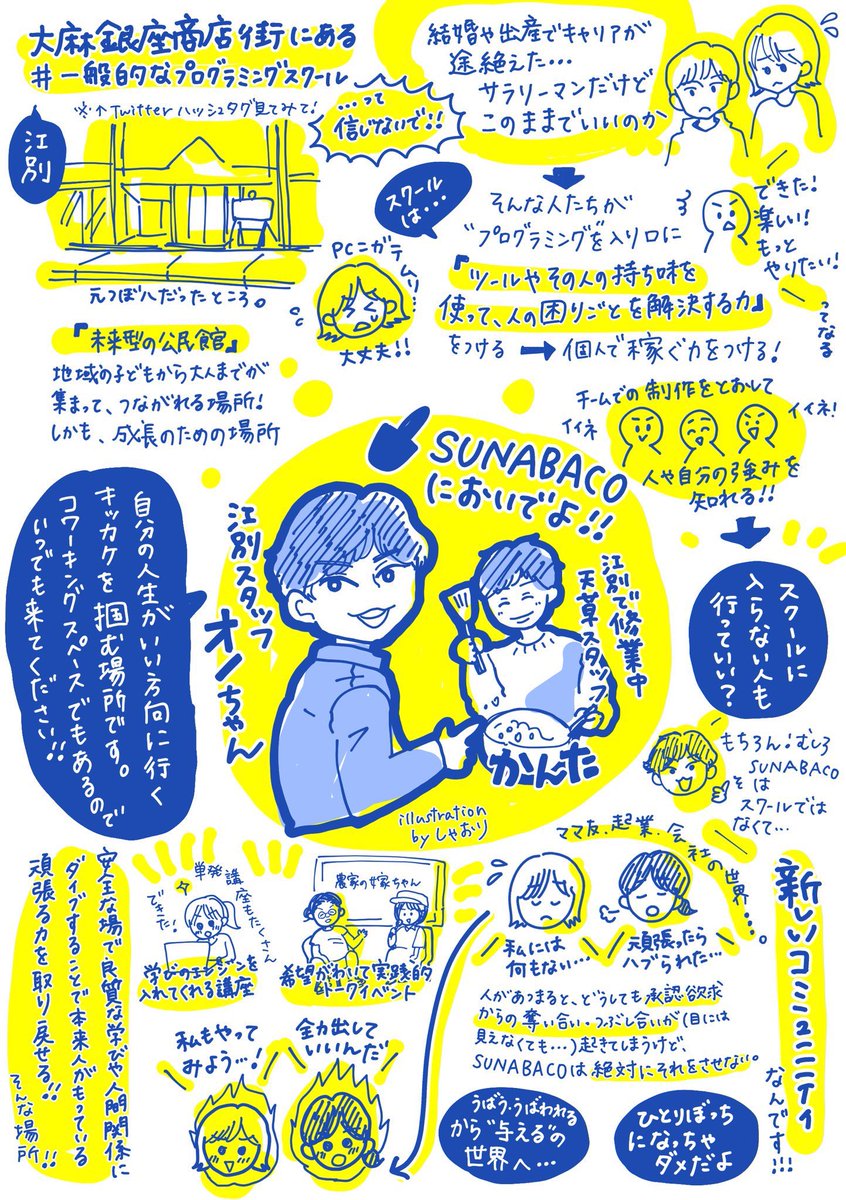 大麻銀座商店街にある
#一般的なプログラミングスクール
※↑Twitterハッシュタグ見てみて!
…って
信じないで!!
江別
元つぼ八だったところ。
『未来型の公民館』
地域の子どもから大人までが
集まって、つながれる場所!
しかも、成長のための場所
結婚や出産でキャリアが
途絶えた…
サラリーマンだけど
このままでいいのか
スクール
は…
そんな人たちが
"プログラミング"を入り口に
『ツールやその人の持ち味を
使って、人の困りごとを解決する力』
をつける → 個人で稼ぐ力をつける!
できた!
楽しい!
もっと
やりたい!
ってなる
PCニガテ
ムリ…
大丈夫!!
チームでの制作をとおして
イイネ
イイネ!
人や自分の強みを
知れる!!
SUNABACO
においでよ!!
江別スタッフ
オノちゃん
江別で修業中
天草スタッフ
かんた
illustration
by しゃおり
自分の人生がいい方向に行く
キッカケを掴む場所です。
コワーキングスペースでもあるので
いつでも来てください!!
スクールに
入らない人も
行っていい?
もちろん!むしろ
SUNABACO
は
スクールでは
なくて…
新しいコミュニティ
なんです!!!
ママ友、起業、会社の世界…。
私には
何もない…
頑張ったら
ハブられた…
人があつまると、どうしても承認欲求
からの奪い合い・つぶし合いが(目には
見えなくても…)起きてしまうけど、
SUNABACOは絶対にそれをさせない。
うばう・うばわれる
から"与える"の
世界へ…
ひとりぼっち
になっちゃ
ダメだよ
単発講座もたくさん
できた!
学びのエンジンを
入れてくれる講座
農家の嫁ちゃん
希望がわいて実践的
なトークイベント
私もやって
みよう…!
全力出して
いいんだ
安全な場で良質な学びや人間関係に
ダイブすることで本来人がもっている
頑張る力を取り戻せる!!
そんな場所!!